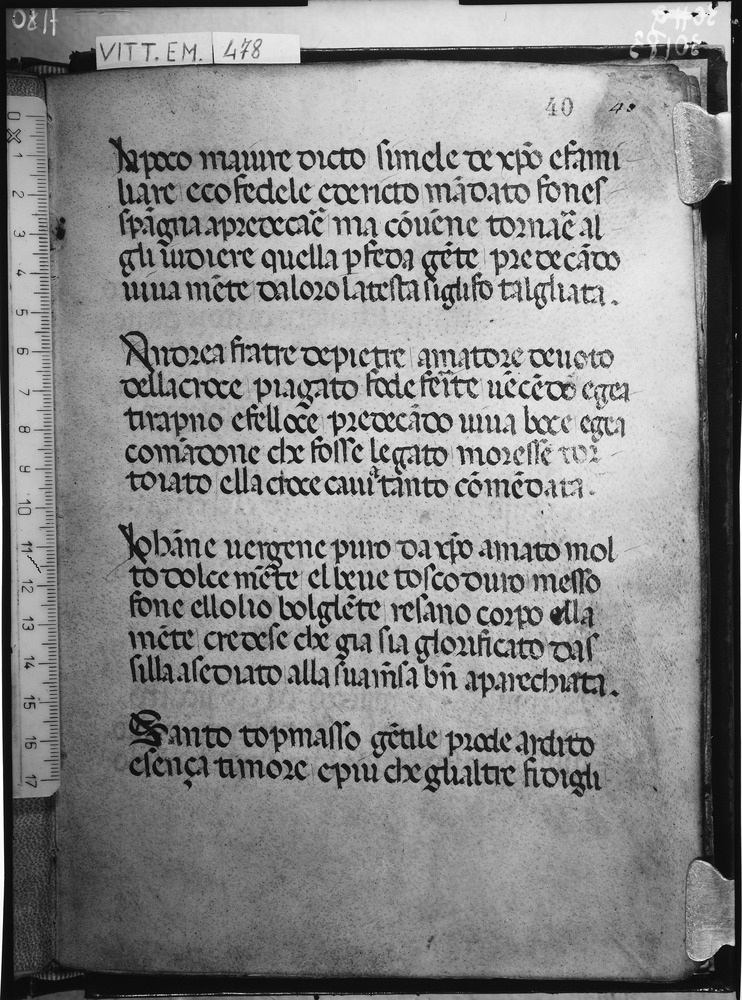 VITT. EM. 478
40 40
Iapoco maiure dicto simele de xp̄o efami
liare ecofedele ediricto mādato fone s
spāgna apredecar̄e ma cōuēne tornar̄e al
gli uidiere quella pfeda gēte predecādo
uiua mēte daloro latesta sigli fo talgliata.
Andrea fratre depietre amatore deuoto
dellacroce piagato fode ferīte uēcēdo egea
tirapno efelloc̄e predecādo uiua boce egea
comādone che fosse legato moresse tor
toiato ella croce cauia tanto cōmēdata.
Iohān e uergene puro da xp̄o amato mol
to dolce mēte el beue tosco duro messo
fone ellolio bolglēte resano corpo ella
mēte credese che gia sia glorificato das
silla asediato alla sua mīsa bn̄ aparechiata.
Santo topmasso gētile prode ardito
esença timore epiu che glialtre fidigli
0 1 2 3 4 5 6 7 8 9 10 11 12 13 14 15 16 17